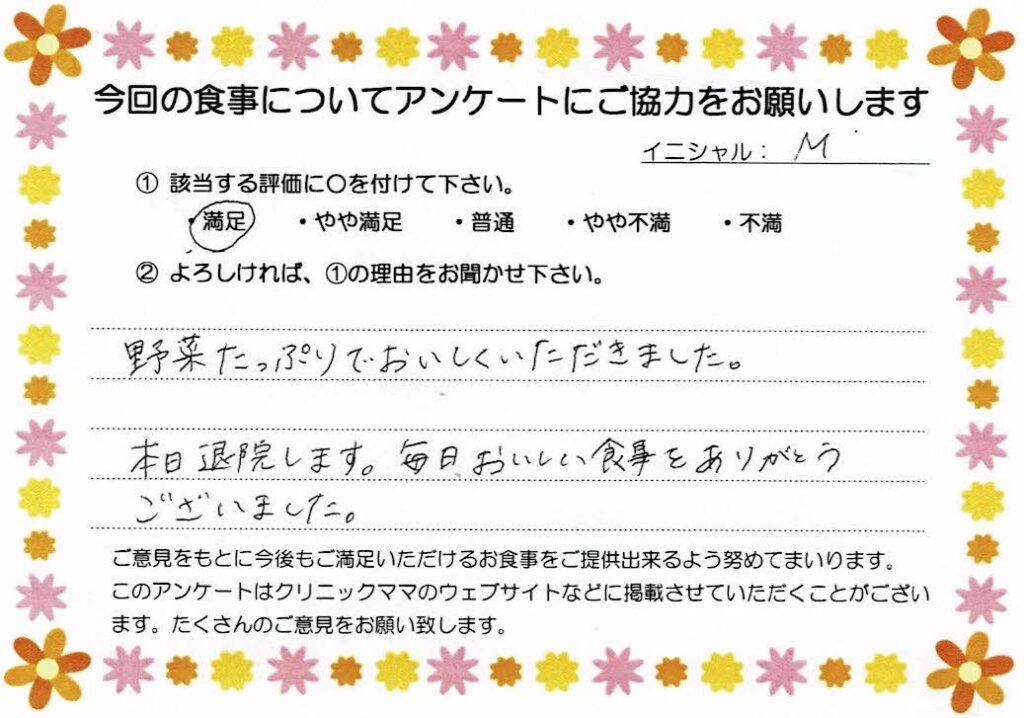 今回の食事についてアンケートにご協力をお願いします
イニシャル： M
① 該当する評価に〇を付けて下さい。
・満足 ・やや満足 ・普通 ・やや不満 ・不満
② よろしければ、①の理由をお聞かせ下さい。
野菜たっぷりでおいしくいただきました。
本日退院します。毎日おいしい食事をありがとう
ございました。
ご意見をもとに今後もご満足いただけるお食事をご提供出来るよう努めてまいります。
このアンケートはクリニックママのウェブサイトなどに掲載させていただくことがござい
ます。たくさんのご意見をお願い致します。